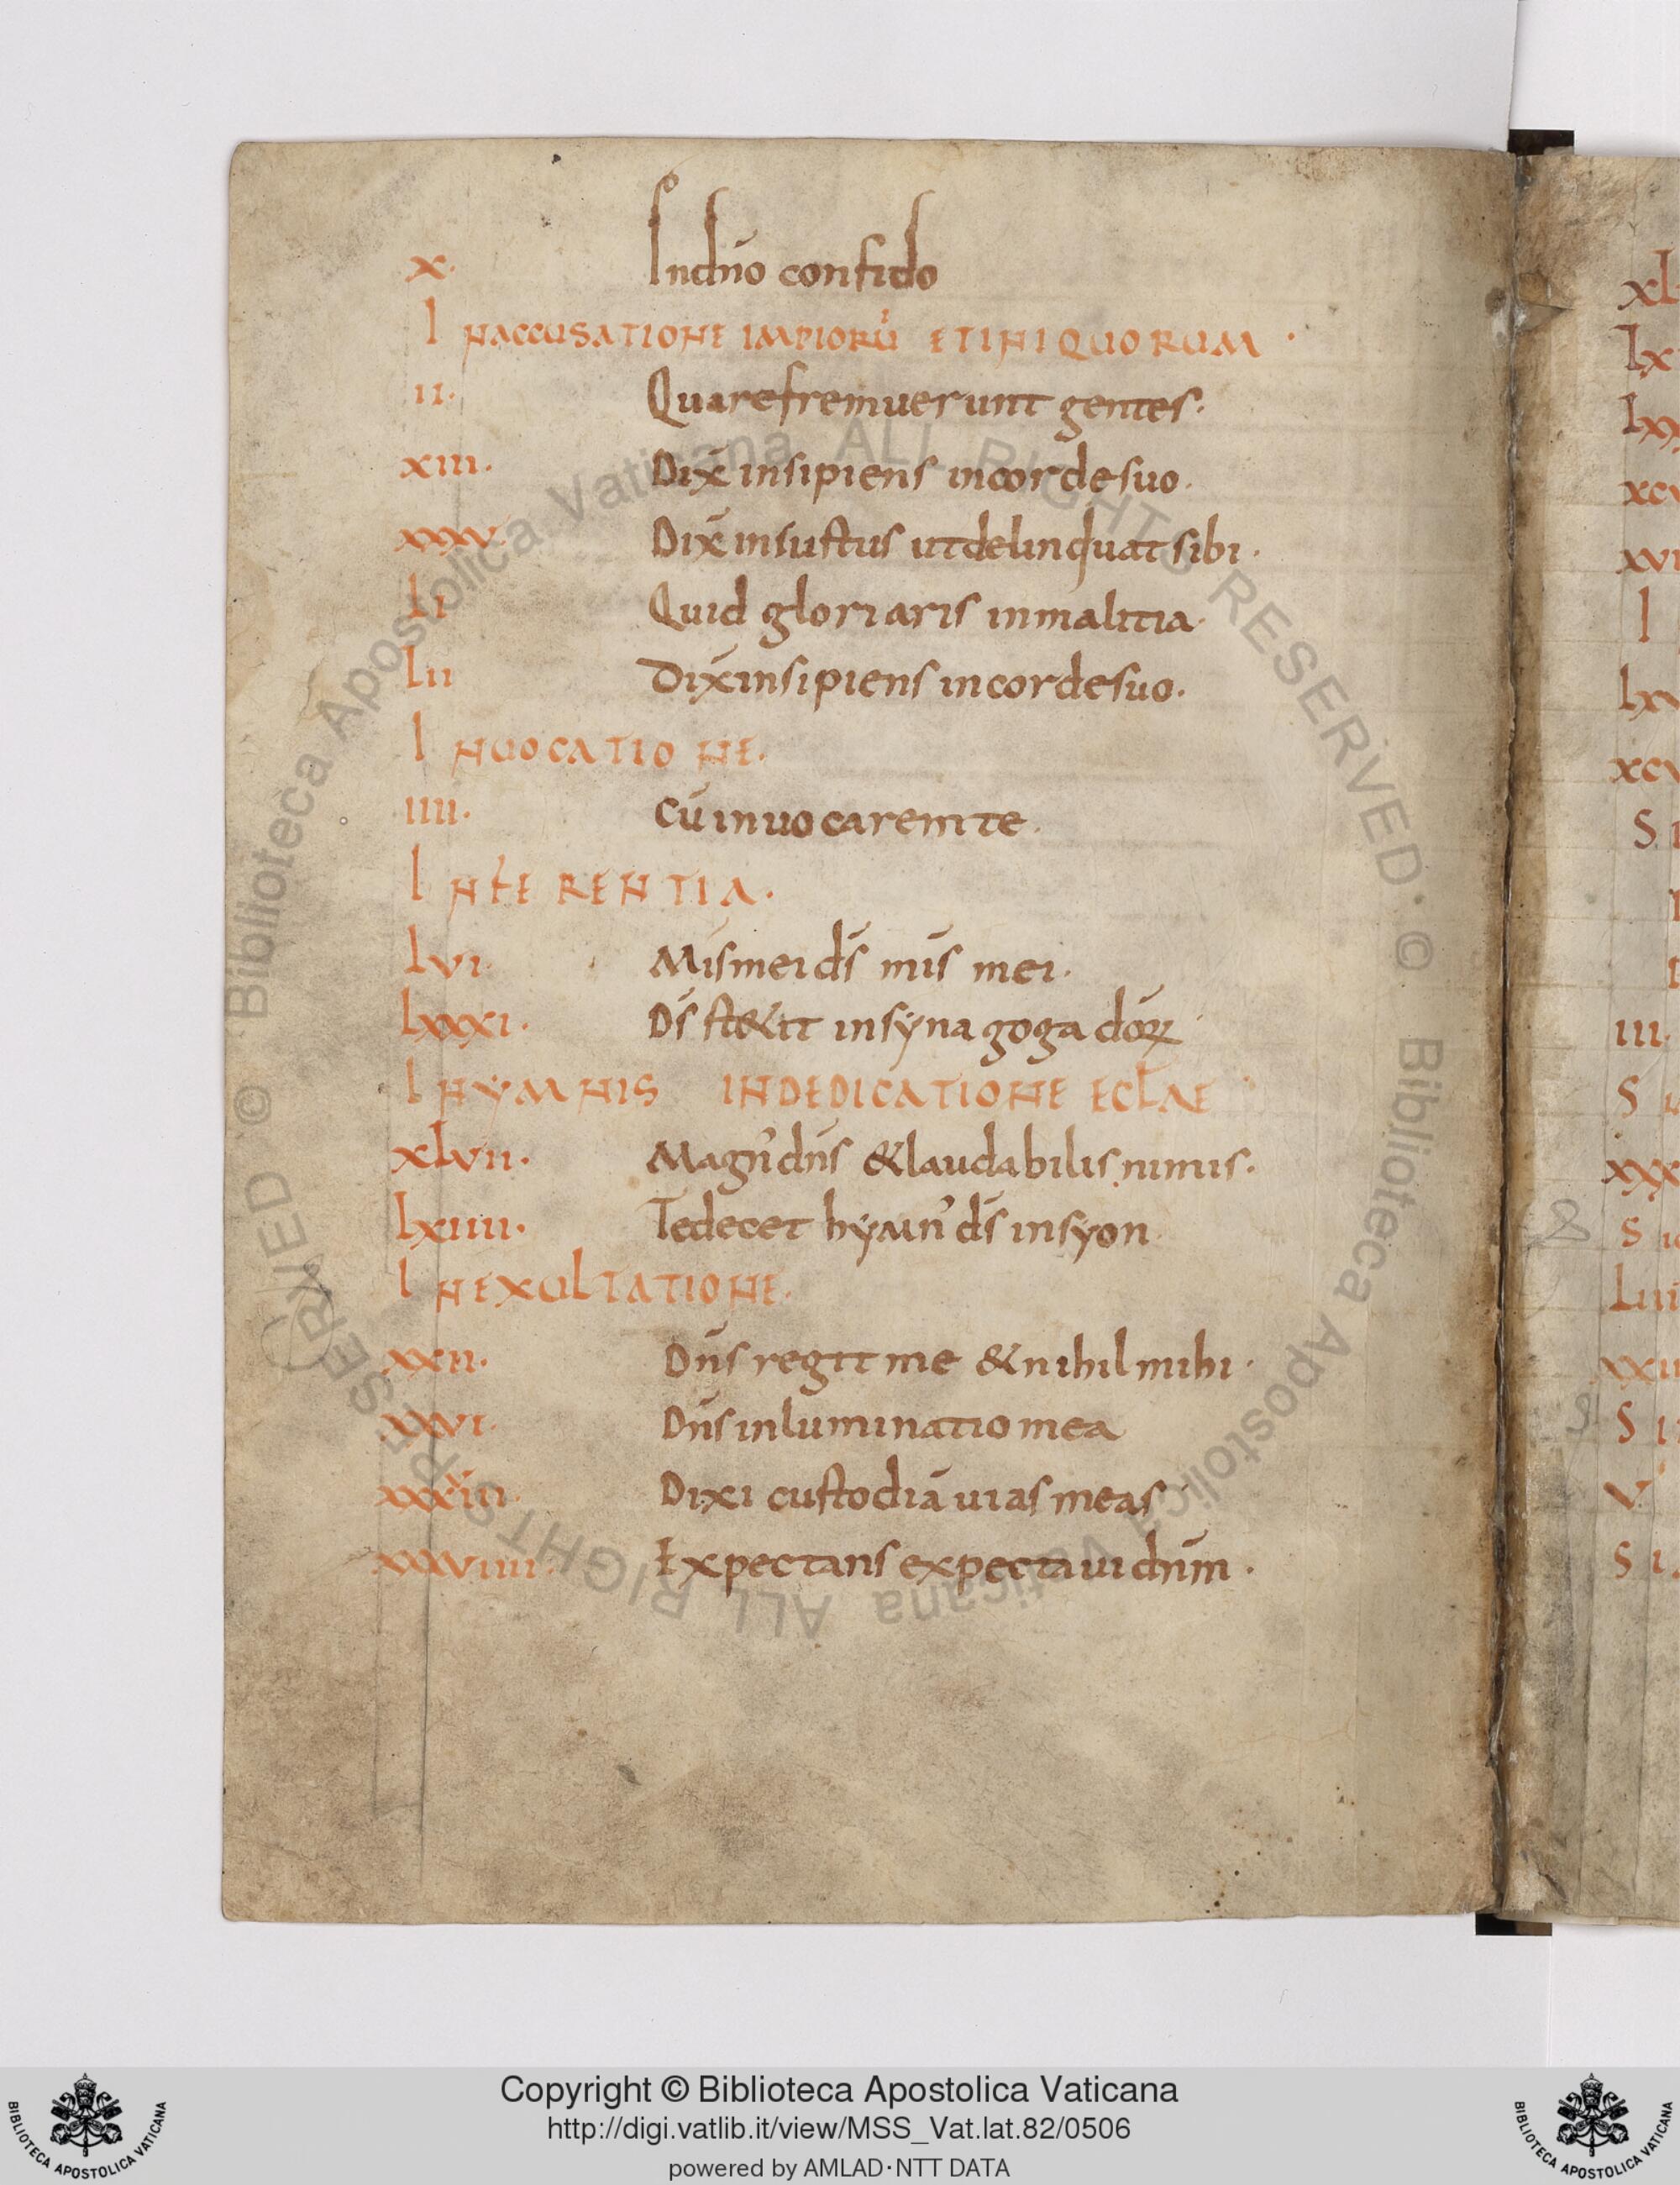 x. In dño confido
IN ACCUSATIONE IMPIORŪ ET INIQUORUM.
ii. Quare fremuerunt gentes.
xiii. Dix̄ insipiens in corde suo.
xxxv. Dix̄ iniustus ut delinquat sibi.
Li Quid gloriaris in malitia.
Lii Dix̄ insipiens in corde suo.
INUOCATIONE.
iiii. Cū inuocarem te.
IN FERENTIA.
Lvi. Mis mei ds̄ mis̄ mei.
Lxxxi. Ds̄ stetit in synagoga deōꝝ
IN HYMNIS IN DEDICATIONE ECLAE
xLvii. Magn' dn̄s & laudabilis nimis.
Lxiiii. Te decet hymn' ds̄ in syon
IN EXULTATIONE.
xxii. Dn̄s regit me & nihil mihi.
xxvi. Dn̄s inluminatio mea
xxxviii. Dixi custodiā uias meas
xxxviiii. Expectans expectaui dnm̄.
xL
Lx
Lxx
xcv
xvi
I
Lxv
xcv
S
iii.
S
xxx
S
Luii
xxii
S
v
S
Copyright © Biblioteca Apostolica Vaticana
http://digi.vatlib.it/view/MSS_Vat.lat.82/0506
powered by AMLAD·NTT DATA
BIBLIOTECA APOSTOLICA VATICANA
BIBLIOTECA APOSTOLICA VATICANA
© Biblioteca Apostolica Vaticana ALL RIGHTS RESERVED · © Biblioteca Apostolica Vaticana ALL RIGHTS RESERVED